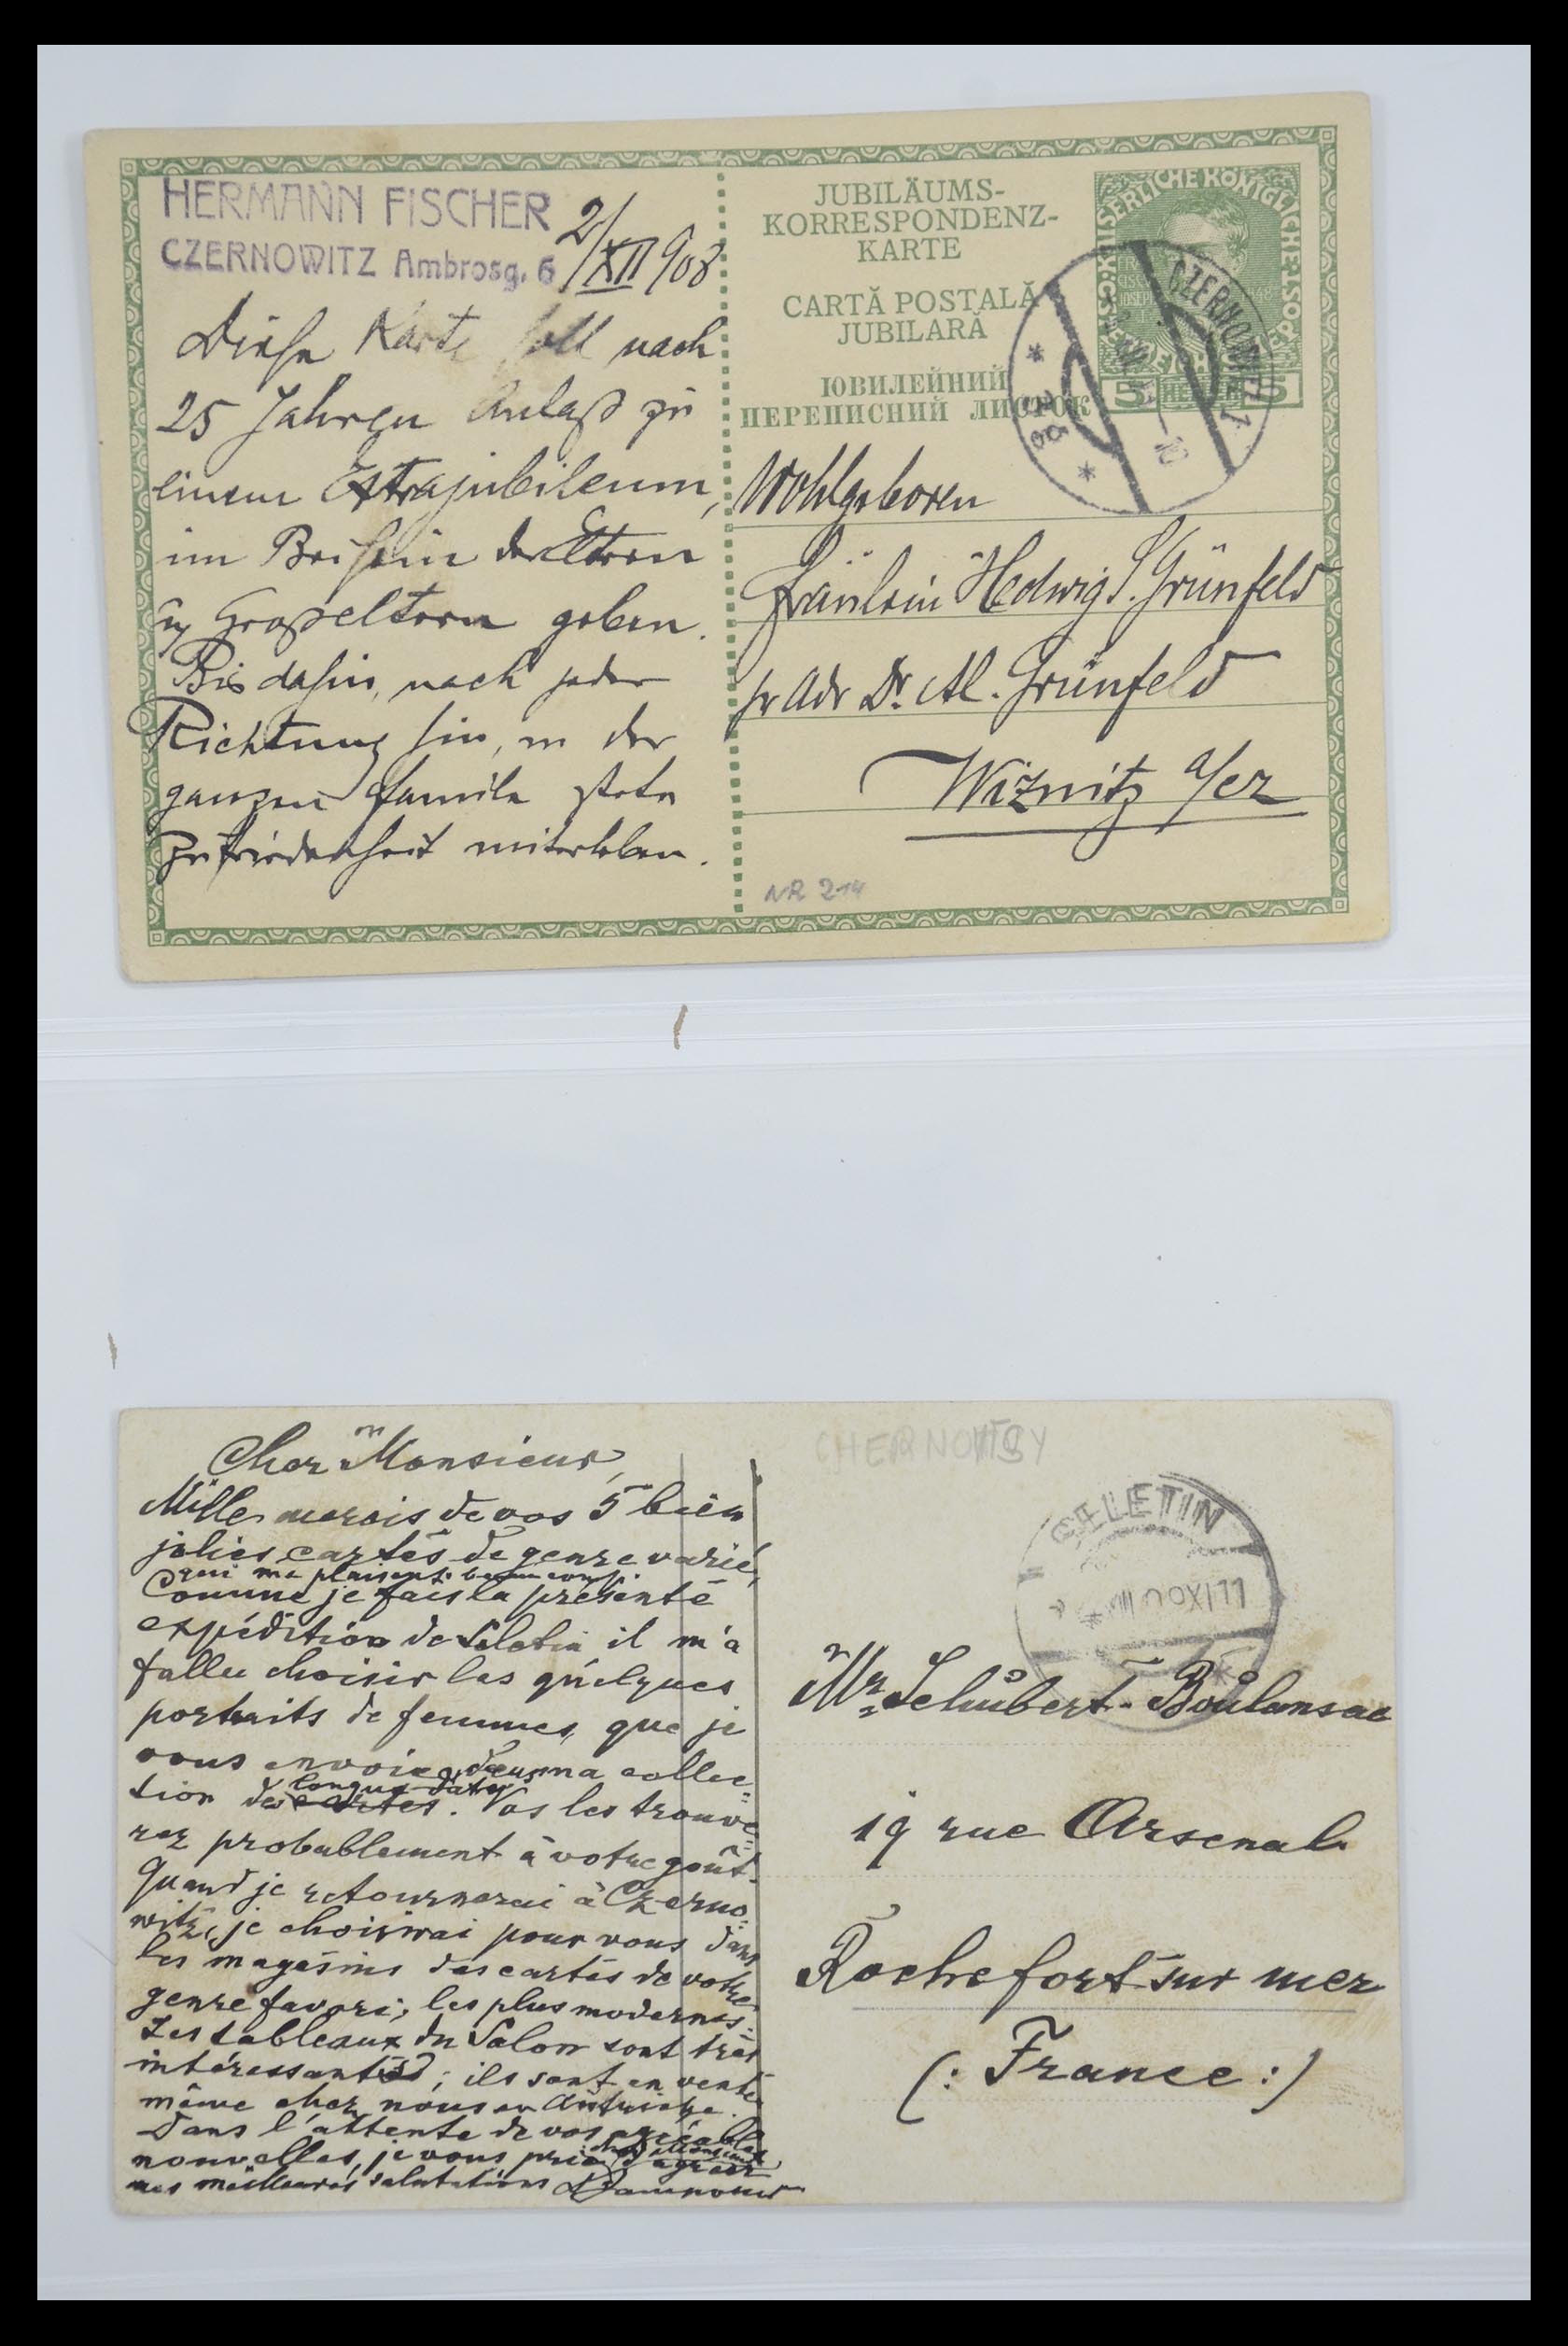 HERMANN FISCHER
CZERNOWITZ Ambrosg. 6
2/XII 908
Diese Karte soll nach
25 Jahren Anlaß zu
einem Extrajubileum,
im Beisein der Eltern
u Großeltern geben.
Bis dahin, nach jeder
Richtung hin, in der
ganzen Familie stete
Zufriedenheit miterleben.
JUBILÄUMS-
KORRESPONDENZ-
KARTE
CARTĂ POSTALĂ
JUBILARĂ
ЮВИЛЕЙНИЙ
ПЕРЕПИСНИЙ ЛИСТОК
KAISERLICHE KÖNIGLICHE
5 HELLER 5
CZERNOWITZ 1
Wohlgeboren
Fräulein Hedwig S. Grünfeld
pr Adr Dr. Al. Grünfeld
Wiznitz a/cz
NR 214
Cher Monsieur,
Mille mercis de vos 5 bien
jolies cartes de genre varié,
qui me plaisent beaucoup.
Comme je fais la présente
expédition de Seletin il m'a
fallu choisir les quelques
portraits de femmes, que je
vous envoie, dans ma collec=
tion de longue date. Vos les trouve=
rez probablement à votre goût.
Quand je retournerai à Czerno=
witz, je choisirai pour vous dans
les magasins des cartes de votre
genre favori, les plus modernes.
Les tableaux du Salon sont très
intéressants; ils sont en vente
même chez nous en Autriche.
Dans l'attente de vos agréables
nouvelles, je vous prie, cher Monsieur, d'agréer
mes meilleures salutations
CHERNOVTSY
SELETIN
11 IX 09
Mr Schubert-Boulansac
19 rue Arsenal
Rochefort sur mer
(: France :)